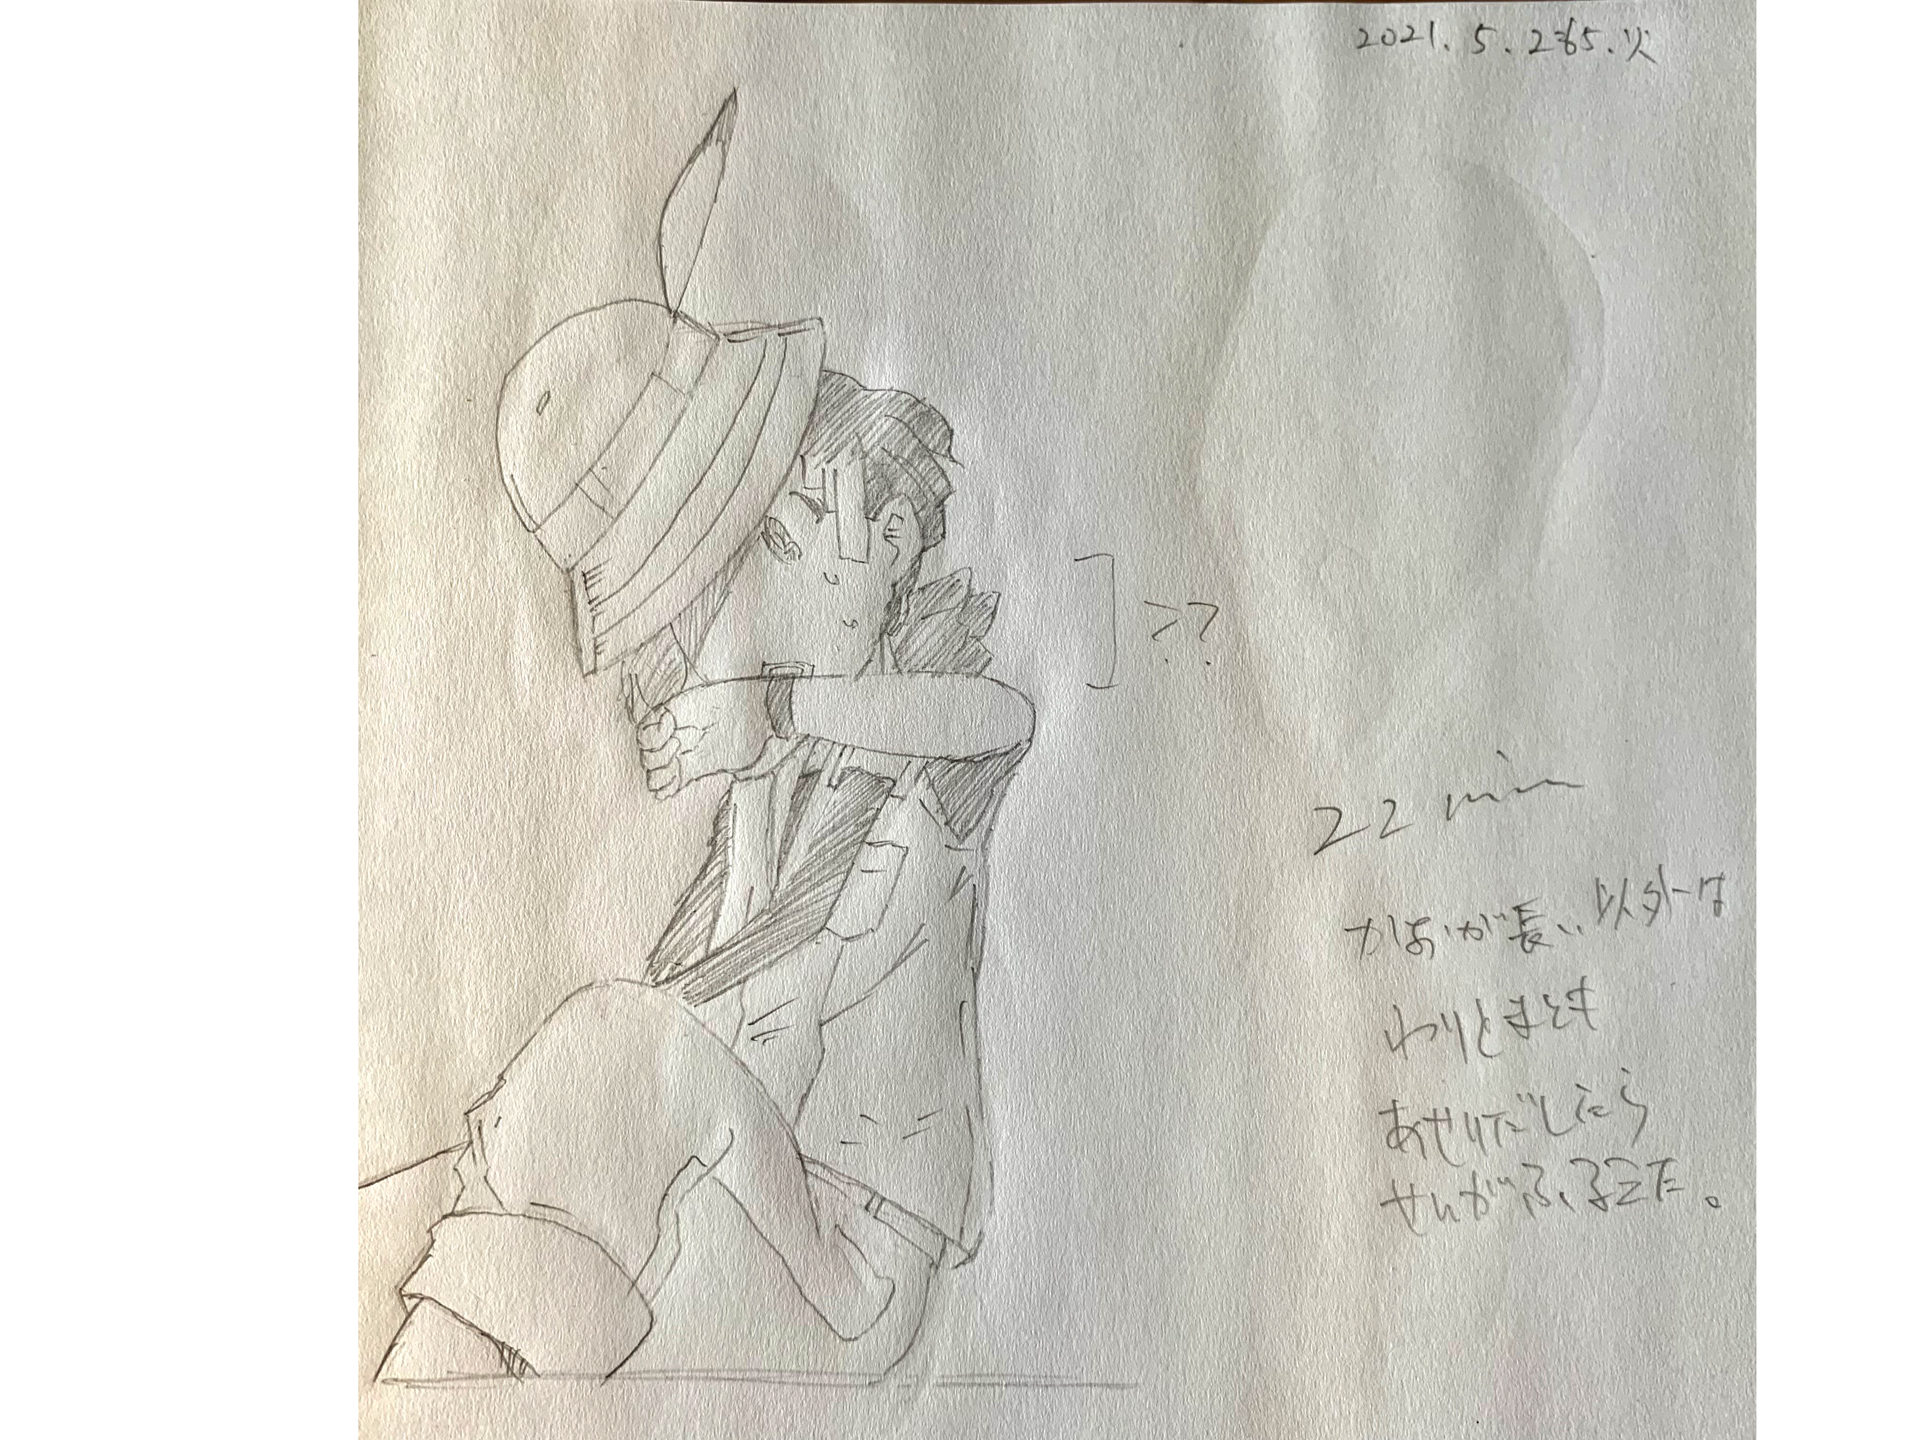 2021. 5. 25. 火
??
22 min
かおが長い以外は
わりとまとも
あせりだしたら
せんがふるえた。